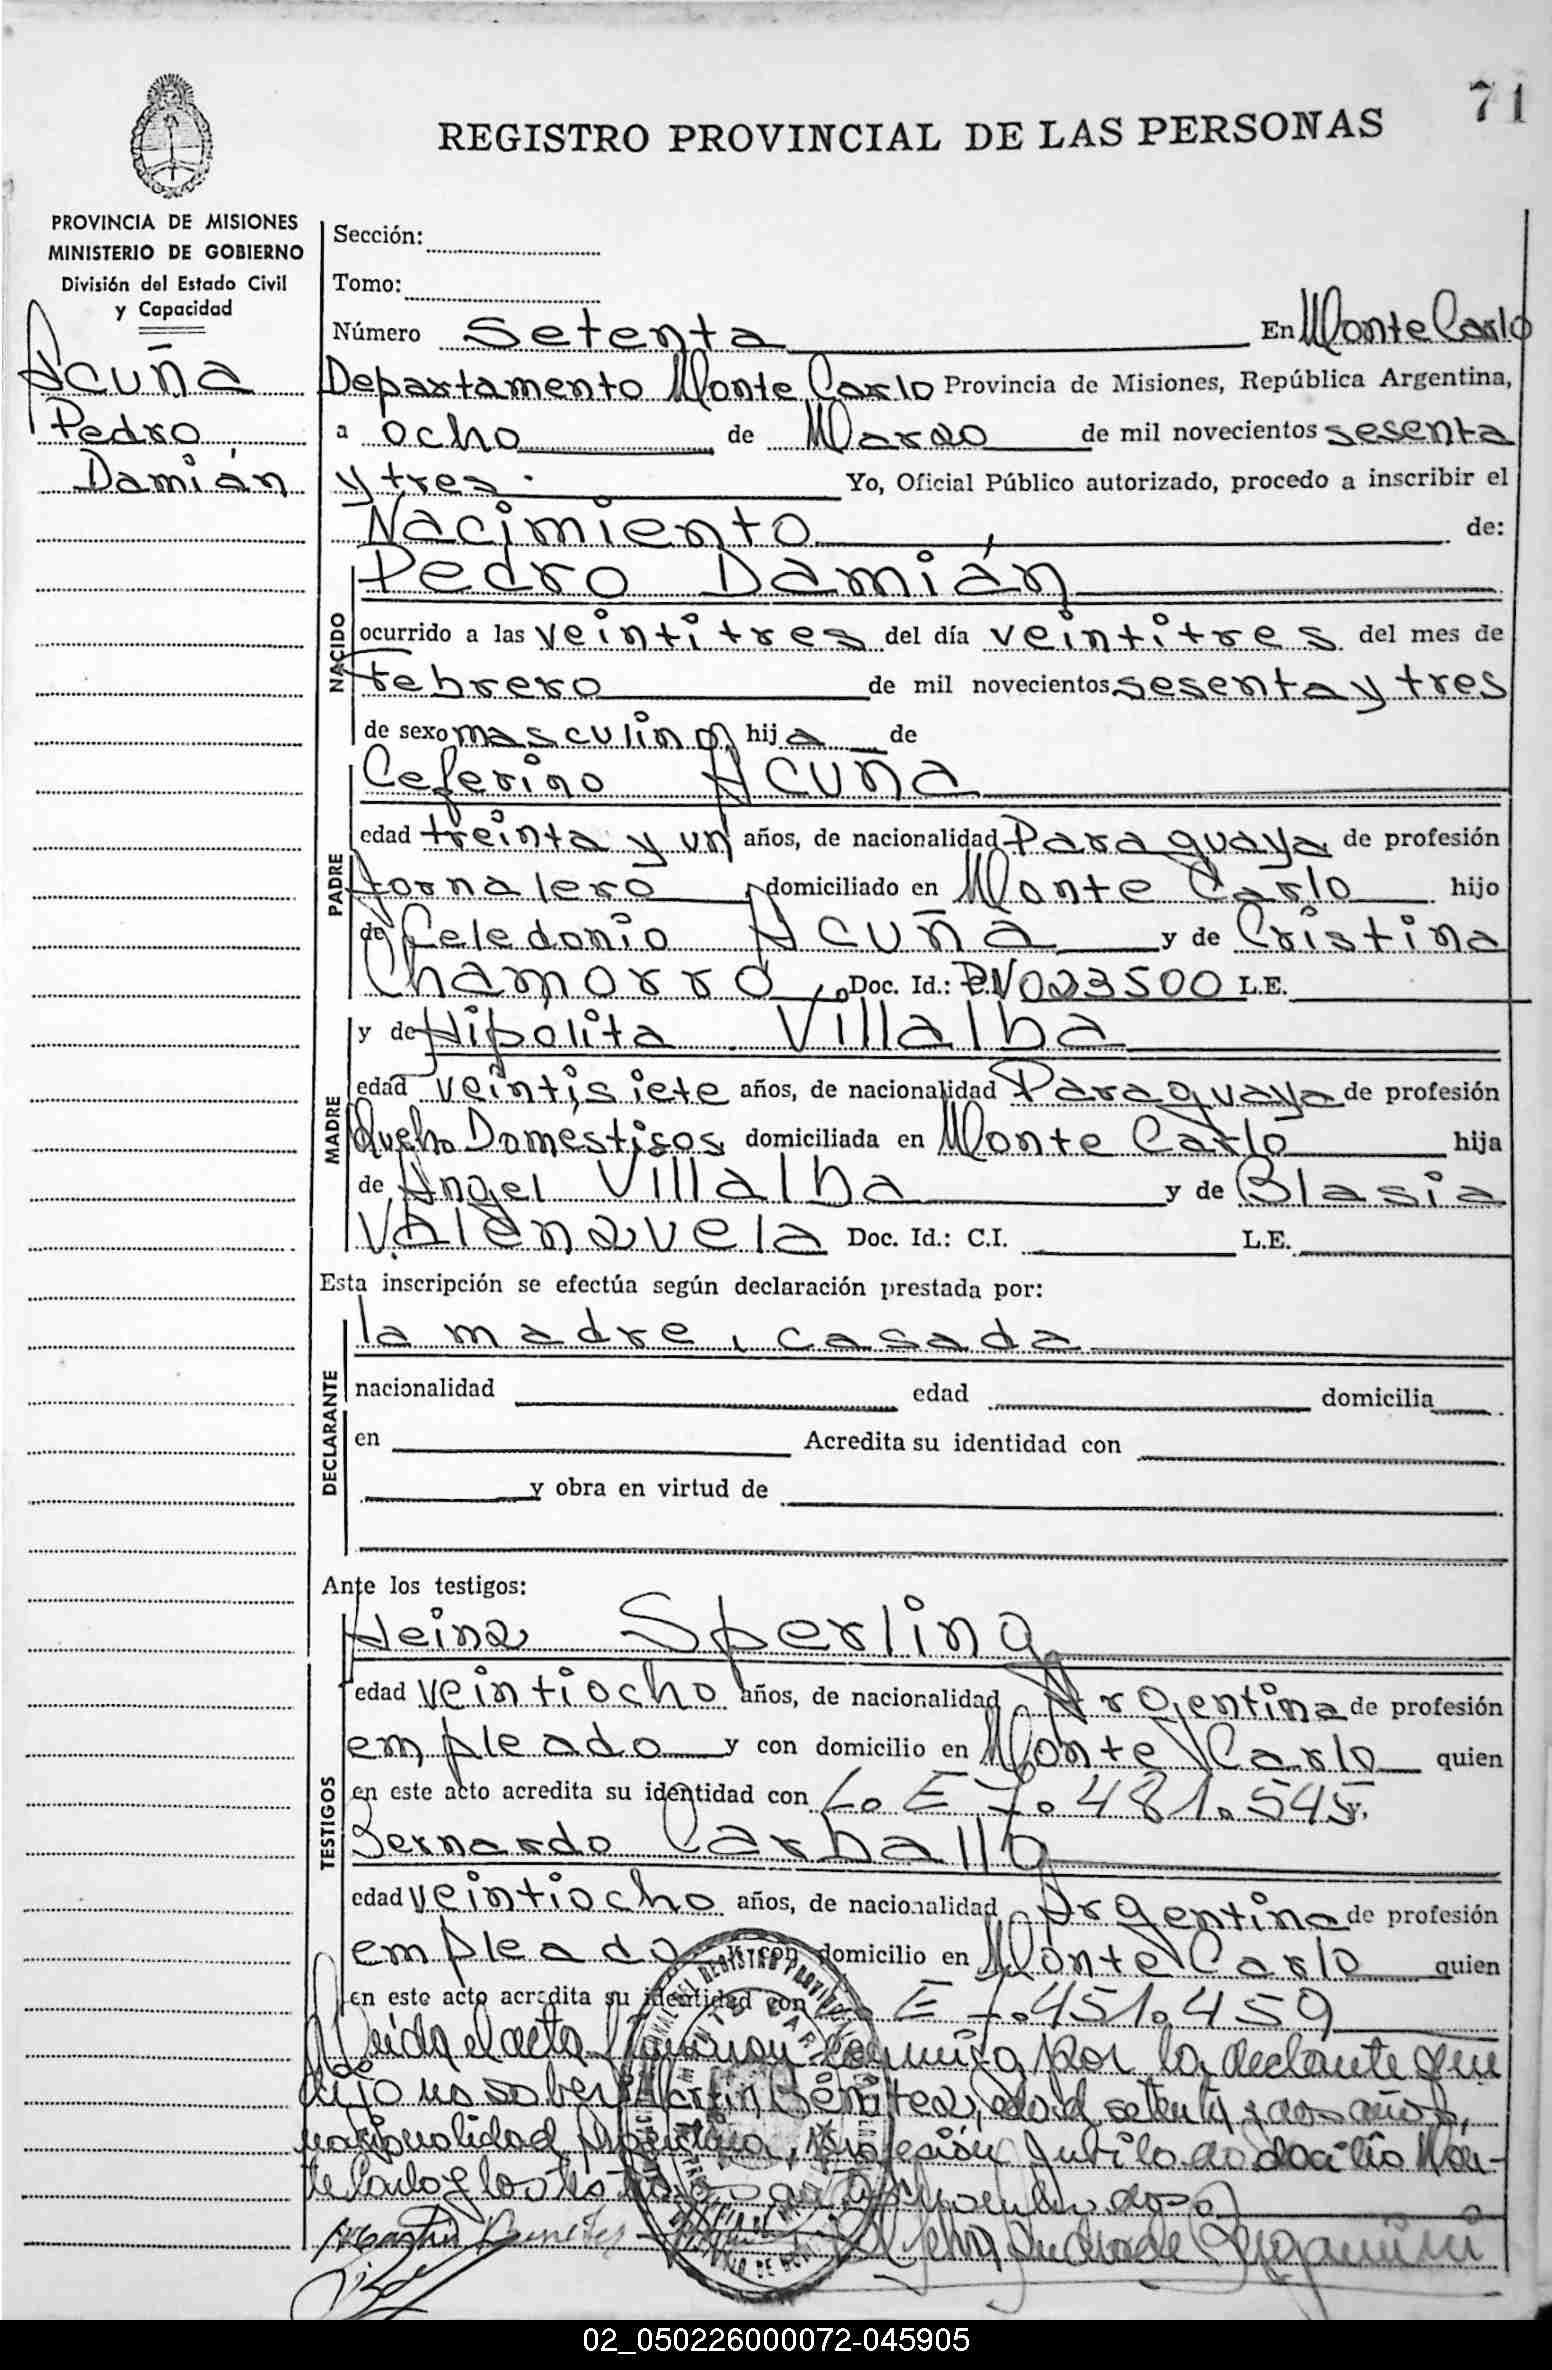 71
REGISTRO PROVINCIAL DE LAS PERSONAS
PROVINCIA DE MISIONES
MINISTERIO DE GOBIERNO
División del Estado Civil
y Capacidad
Acuña
Pedro
Damián
Sección:
Tomo:
Número setenta En Monte Carlo
Departamento Monte Carlo Provincia de Misiones, República Argentina,
a ocho de Marzo de mil novecientos sesenta
y tres Yo, Oficial Público autorizado, procedo a inscribir el
Nacimiento de:
Pedro Damián
NACIDO
ocurrido a las veintitres del día veintitres del mes de
febrero de mil novecientos sesenta y tres
de sexo masculino, hija de
Ceferino Acuña
PADRE
edad treinta y un años, de nacionalidad Paraguaya de profesión
Jornalero domiciliado en Monte Carlo hijo
de Celedonio Acuña y de Cristina
Chamorro Doc. Id.: 023500 L.E.
MADRE
y de Hipólita Villalba
edad veintisiete años, de nacionalidad Paraguaya de profesión
Domesticos domiciliada en Monte Carlo hija
de Angel Villalba y de Blasia
Valenzvela Doc. Id.: C.I. L.E.
Esta inscripción se efectúa según declaración prestada por:
DECLARANTE
la madre, casada
nacionalidad edad domicilia
en Acredita su identidad con
y obra en virtud de
Ante los testigos:
TESTIGOS
Heinz Sperling
edad veintiocho años, de nacionalidad Argentina de profesión
empleado y con domicilio en Monte Carlo quien
en este acto acredita su identidad con L. E 7.481.545
Bernardo Carballo
edad veintiocho años, de nacionalidad Argentina de profesión
empleado y con domicilio en Monte Carlo quien
en este acto acredita su identidad con E 7.451.459
Leida el acta conmigo por la
dijo no saber Martin Benitez, edad setenta y dos años,
nacionalidad Argentina, profesión Jubilado Mon-
te Carlo y los
Martin Benitez
02_050226000072-045905